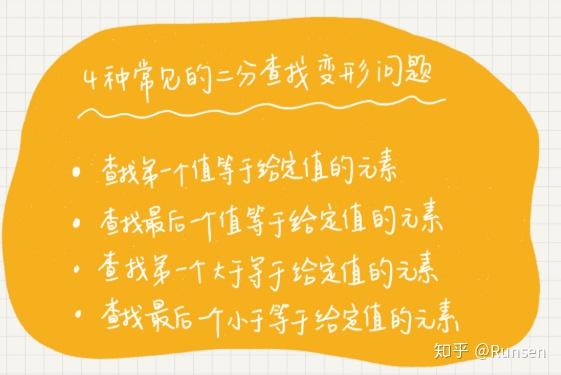 4种常见的二分查找变形问题
• 查找第一个值等于给定值的元素
• 查找最后一个值等于给定值的元素
• 查找第一个大于等于给定值的元素
• 查找最后一个小于等于给定值的元素
知乎 @Runsen